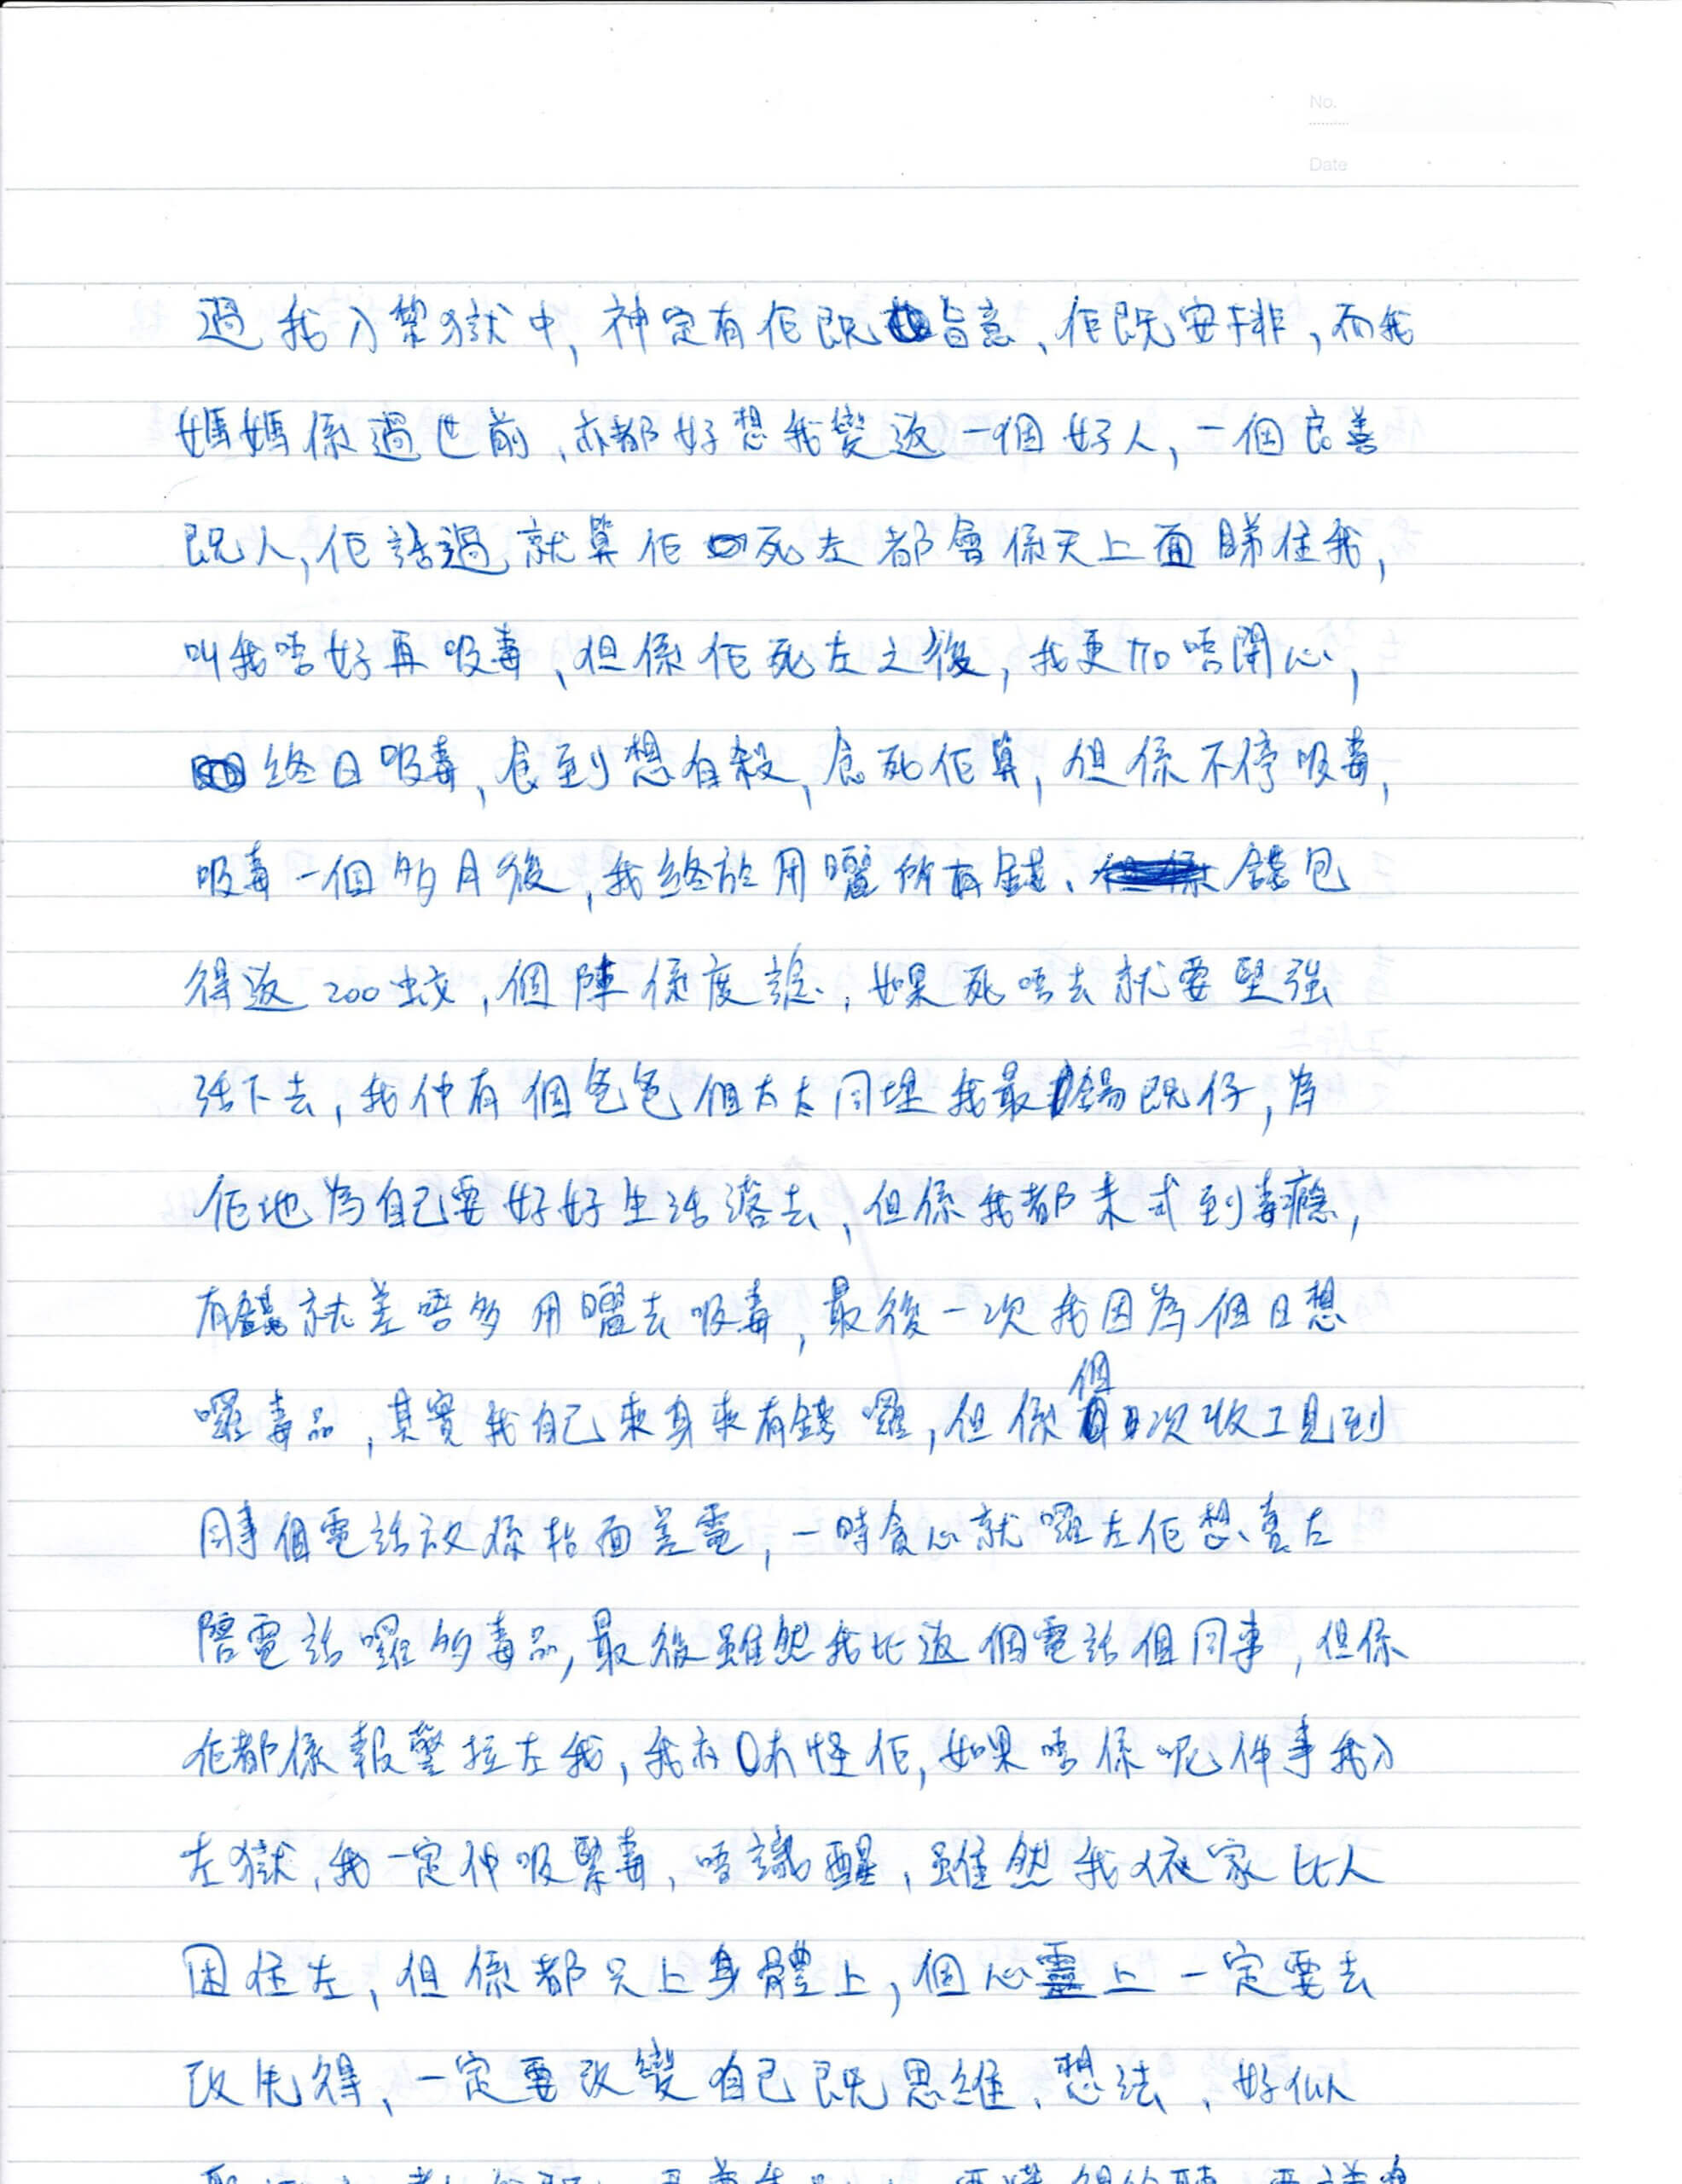 No.
Date
過我入黎獄中, 神定有佢既旨意、佢既安排, 而我
媽媽係過世前、亦都好想我變返一個好人, 一個良善
既人, 佢話過就算佢死左都會係天上面睇住我,
叫我唔好再吸毒、但係佢死左之後, 我更加唔開心,
終日吸毒, 食到想自殺, 食死佢算, 但係不停吸毒,
吸毒一個多月後, 我終於用曬所有錢、錢包
得返 200 蚊, 個陣係度諗, 如果死唔去就要堅強
活下去, 我仲有個爸爸 但太太同埋我最錫既仔, 為
佢地為自己要好好生活落去, 但係我都未式到毒癮,
有錢就差唔多用曬去吸毒, 最後一次我因為個日想
囉毒品, 其實我自己本身來有錢囉, 但係個次收工見到
同事個電話放係枱面差電, 一時貪心就囉左佢想、賣左
電話囉多毒品, 最後雖然我比返個電話個同事, 但係
佢都係報警拉左我, 我亦冇怪佢, 如果唔係呢件事我入
左獄, 我一定仲吸緊毒, 唔識醒, 雖然我依家比人
困住左, 但係都只上身體上, 個心靈上一定要去
改先得、一定要改變自己既思維、想法、好似